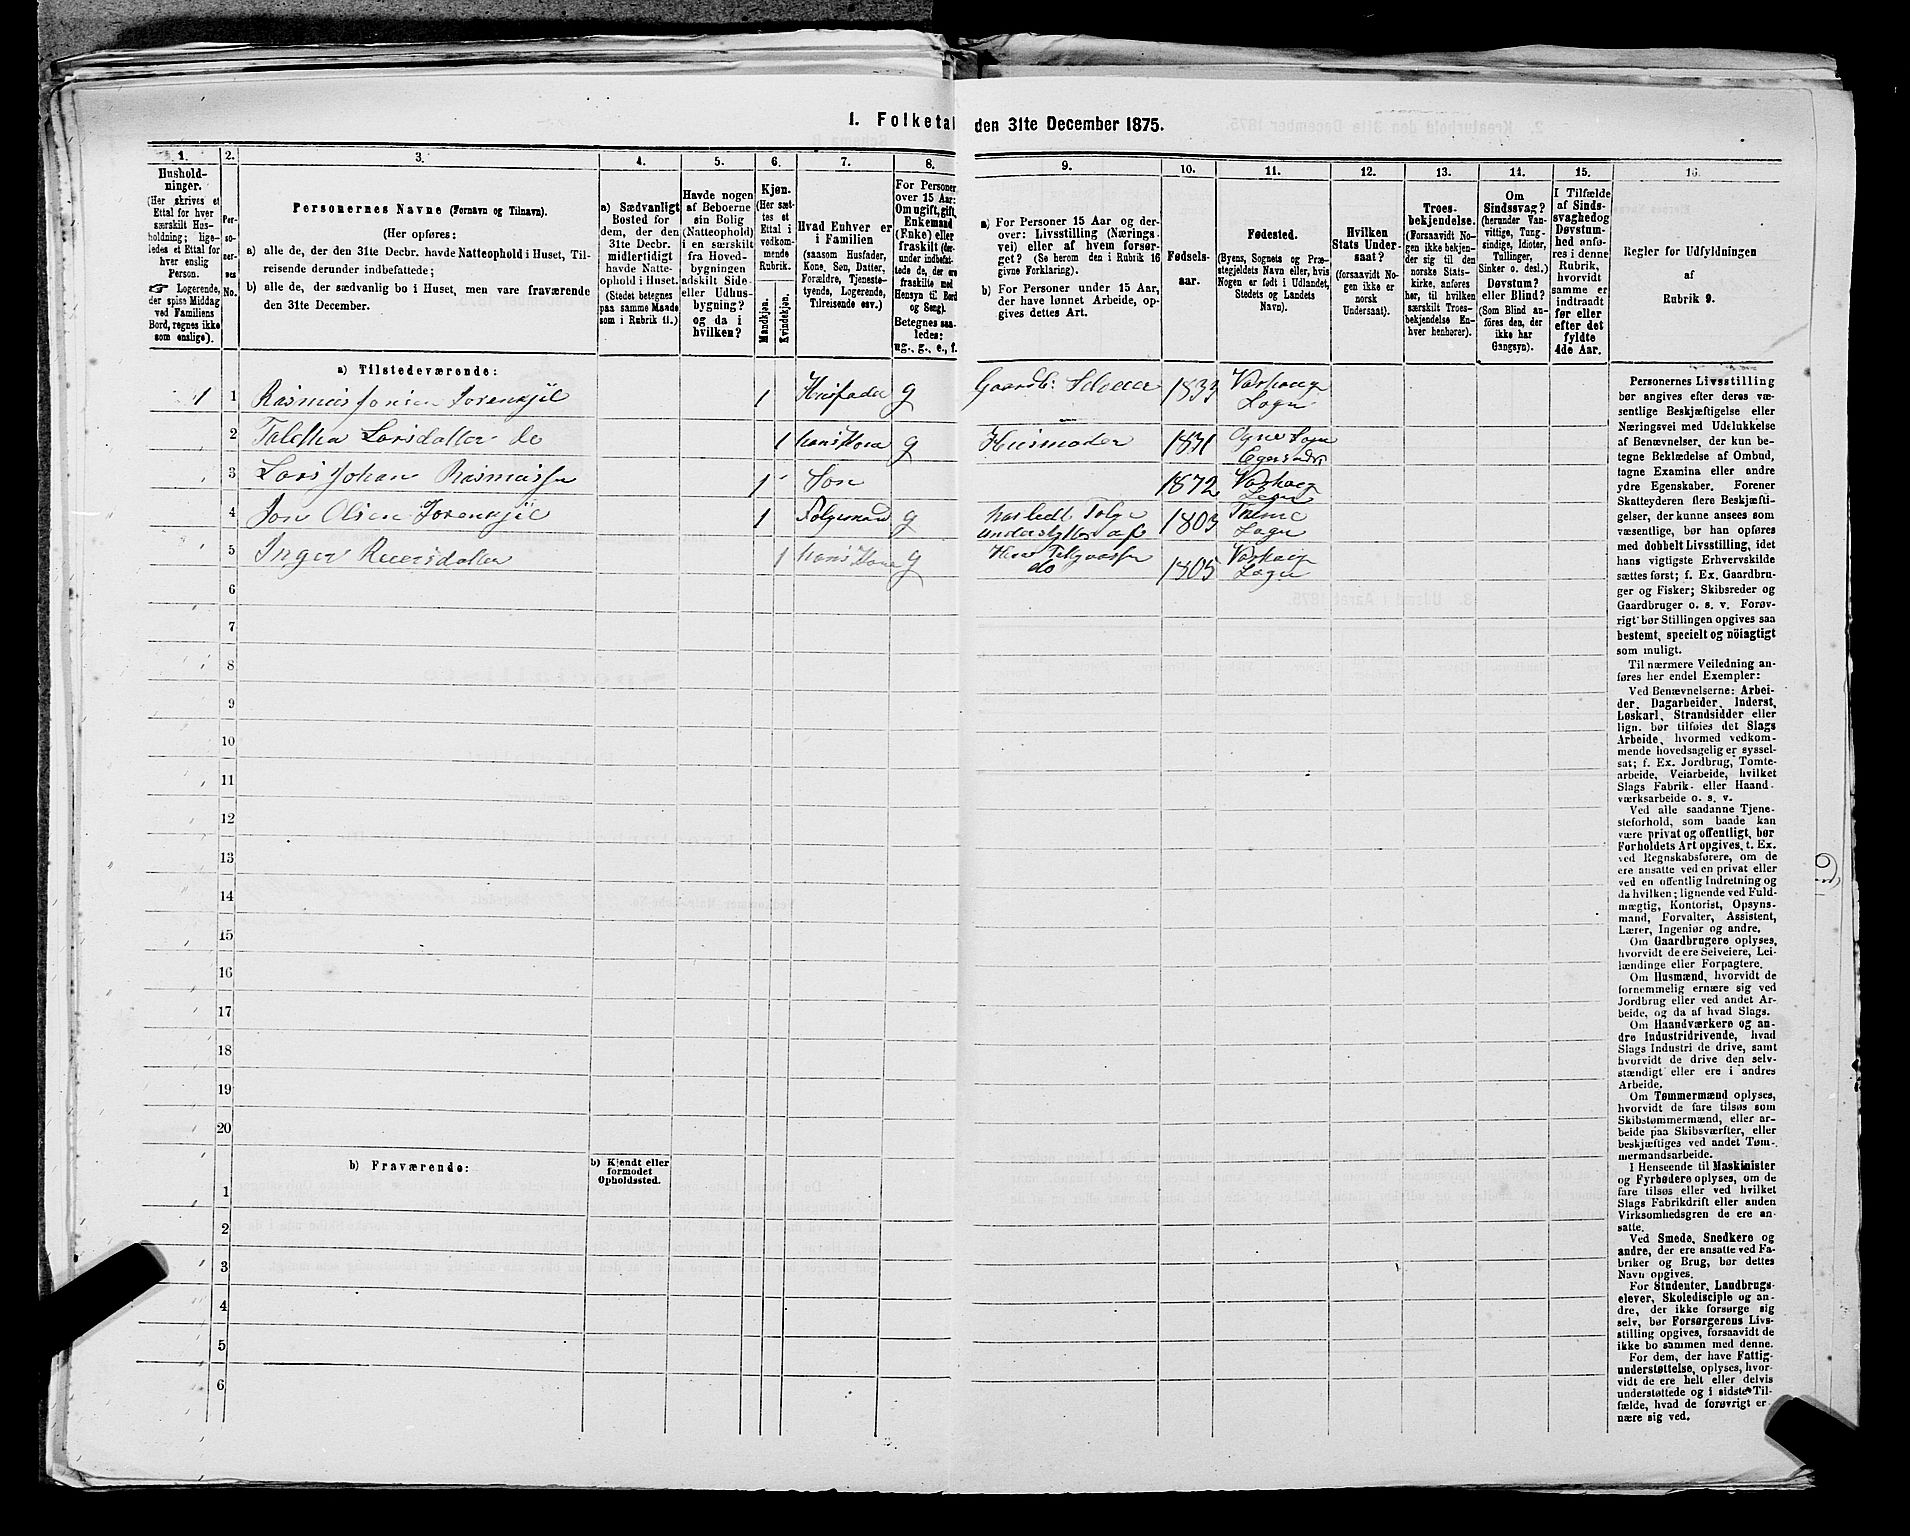 1. Folketal den 31te December 1875.
1. 2. 3. 4. 5. 6. 7. 8. 9. 10. 11. 12. 13. 14. 15. 16.
Hushold-
ninger.
(Her skrives et
Ettal for hver
særskilt Hus-
holdning; lige-
ledes et Ettal for
hver enslig
Person.
☞ Logerende,
der spise Middag
ved Familiens
Bord, regnes ikke
som enslige).
Per-
so-
ner-
nes
No.
Personernes Navne (Fornavn og Tilnavn).
(Her opføres:
a) alle de, der den 31te Decbr. havde Natteophold i Huset, Til-
reisende derunder indbefattede;
b) alle de, der sædvanlig bo i Huset, men vare fraværende
den 31te December.
a) Sædvanligt
Bosted for
dem, der den
31te Decbr.
midlertidigt
havde Natte-
ophold i Huset.
(Stedet betegnes
paa samme Maade
som i Rubrik 11.)
Havde nogen
af Beboerne
sin Bolig
(Natteophold)
i en særskilt
fra Hoved-
bygningen
adskilt Side-
eller Udhus-
bygning?
og da i
hvilken?
Kjøn.
(Her sæt-
tes et
Ettal i
vedkom-
mende
Rubrik.
Mandkjøn.
Kvindekjøn.
Hvad Enhver er
i Familien
(saasom Husfader,
Kone, Søn, Datter,
Forældre, Tjeneste-
tyende, Logerende,
Tilreisende osv.)
For Personer
over 15 Aar:
Om ugift, gift,
Enkemand
(Enke) eller
fraskilt (der-
under indbefat-
tede de, der ere
fraskilte med
Hensyn til Bord
og Seng).
Betegnes saa-
ledes:
ug., g., e., f.
a) For Personer 15 Aar og der-
over: Livsstilling (Nærings-
vei) eller af hvem forsør-
get? (Se herom den i Rubrik 16
givne Forklaring).
b) For Personer under 15 Aar,
der have lønnet Arbeide, op-
gives dettes Art.
Fødsels-
aar.
Fødested.
(Byens, Sognets og Præ-
stegjeldets Navn eller, hvis
Nogen er født i Udlandet,
Stedets og Landets
Navn).
Hvilken
Stats Under-
saat?
(forsaavidt No-
gen ikke er
norsk
Undersaat).
Troes-
bekjendelse.
(Forsaavidt No-
gen ikke bekjen-
der sig til den
norske Stats-
kirke, anføres
her, til hvilken
særskilt Troes-
bekjendelse En-
hver henhører).
Om
Sindssvag?
(herunder Van-
vittige, Tung-
sindige, Idioter,
Tullinger,
Sinker o. desl.)
Døvstum?
eller Blind?
(Som Blind an-
føres den, der
ikke har
Gangsyn).
I Tilfælde
af Sinds-
svaghed og
Døvstum-
hed anfø-
res i denne
Rubrik,
hvorvidt
samme er
indtraadt
før eller
efter det
fyldte
4de Aar.
Regler for Udfyldningen
af
Rubrik 9.
a) Tilstedeværende:
1 1 Rasmus Jonsen Torenkjil 1 Husfader g Gaardb: Selveier 1833 Varhaug Sogn
2 Taletha Larsdatter do 1 hans Kone g Husmoder 1831 Ogne Sogn Egersund
3 Lars Johan Rasmussen 1 Søn 1872 Varhaug Sogn
4 Jon Olsen Torenkjil 1 Folgemand g har lidt Folge understyttes af 1803 Thime Sogn
5 Inger Reiersdatter 1 hans Kone g do 1805 Varhaug Sogn
6
7
8
9
10
11
12
13
14
15
16
17
18
19
20
b) Fraværende:
b) Kjendt eller
formodet
Opholdssted.
1
2
3
4
5
6
Personernes Livsstilling
bør angives efter deres væ-
sentlige Beskjæftigelse eller
Næringsvei med Udelukkelse
af Benævnelser, der kun be-
tegne Beklædelse af Ombud,
tagne Examina eller andre
ydre Egenskaber. Forener
Skatteyderen flere Beskjæfti-
gelser, der kunne ansees som
væsentlige, bør han opføres
med dobbelt Livsstilling, idet
hans vigtigste Erhvervskilde
sættes først; f. Ex. Gaardbru-
ger og Fisker; Skibsreder og
Gaardbruger o. s. v. Forøv-
rigt bør Stillingen opgives saa
bestemt, specielt og nöiagtigt
som muligt.
Til nærmere Veiledning an-
føres her endel Exempler:
Ved Benævnelserne: Arbei-
der, Dagarbeider, Inderst,
Løskarl, Strandsidder eller
lign. bør tilføies det Slags
Arbeide, hvormed vedkom-
mende hovedsagelig er syssel-
sat; f. Ex. Jordbrug, Tomte-
arbeide, Veiarbeide, hvilket
Slags Fabrik- eller Haand-
værksarbeide o. s. v.
Ved alle saadanne Tjene-
steforhold, som baade kan
være privat og offentligt, bør
Forholdets Art opgives, t. Ex.
ved Regnskabsførere, om de
ere ansatte ved en privat eller
ved en offentlig Indretning og
da hvilken; lignende ved Fuld-
mægtig, Kontorist, Opsyns-
mand, Forvalter, Assistent,
Lærer, Ingeniør og andre.
Om Gaardbrugere oplyses,
hvorvidt de ere Selveiere, Lei-
lændinge eller Forpagtere.
Om Husmænd, hvorvidt de
fornemmelig ernære sig ved
Jordbrug eller ved andet Ar-
beide, og da af hvad Slags.
Om Haandværkere og an-
dre Industridrivende, hvad
Slags Industri de drive, samt
hvorvidt de drive den selv-
stændigt eller ere i andres
Arbeide.
Om Tømmermænd oplyses,
hvorvidt de fare tilsøs som
Skibstømmermænd, eller ar-
beide paa Skibsværfter, eller
beskjæftiges ved andet Tøm-
mermandsarbeide.
I Henseende til Maskinister
og Fyrbødere oplyses, om de
fare tilsøs eller ved hvilket
Slags Fabrikdrift eller anden
Virksomhedsgren de ere an-
satte.
Ved Smede, Snedkere og
andre, der ere ansatte ved Fa-
briker og Brug, bør dettes
Navn opgives.
For Studenter, Landbrugs-
elever, Skoledisciple og an-
dre, der ikke forsørge sig
selv, bør Forsørgerens Livs-
stilling opgives, forsaavidt de
ikke bo sammen med denne.
For dem, der have Fattig-
understøttelse, oplyses, hvor-
vidt de ere helt eller delvis
understøttede og i sidste Til-
fælde, hvad de forøvrigt er-
nære sig ved.